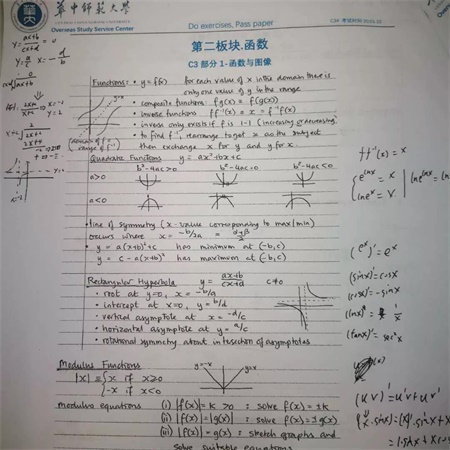 華中師範大學
Overseas Study Service Center
Do exercises, Pass paper
第二板块.函数
C3 部分 1-函数与图像
Functions: • y = f(x) for each value of x in the domain there is
only one value of y in the range
• composite functions: fg(x) = f(g(x))
• inverse functions ff⁻¹(x) = x = f⁻¹f(x)
• inverse only exists if f is 1-1 (increasing or decreasing)
• to find f⁻¹, rearrange to get x as the subject
then exchange x for y and y for x.
Quadratic Functions y = ax²+bx+c
b²-4ac>0 b²-4ac=0 b²-4ac<0
a>0
a<0
• line of symmetry (x value corresponding to max/min)
occurs where x = -b/2a = (α+β)/2
• y = a(x+b)²+c has minimum at (-b,c)
• y = c-a(x+b)² has maximum at (-b,c)
Rectangular Hyperbola y = (ax+b)/(cx+d) c≠0
• root at y=0, x = -b/a
• intercept at x=0, y = b/d
• vertical asymptote at x = -d/c
• horizontal asymptote at y = a/c
• rotational symmetry about intersection of asymptotes
Modulus Functions
|x| = {x if x≥0
-x if x<0
y=-x y=x
modulus equations (i) |f(x)| = k >0 : solve f(x)=±k
(ii) |f(x)| = |g(x)| : solve f(x)=±g(x)
(iii) |f(x)| = g(x) : sketch graphs and
solve suitable equations
y = (ax+b)/(cx+d) = 0
ff⁻¹(x) = x
e^(lnx) = x
lne^x = x
(e^x)' = e^x
(sinx)' = cosx
(cosx)' = -sinx
(lnx)' = 1/x
(tanx)' = sec²x
(uv)' = u'v+uv'